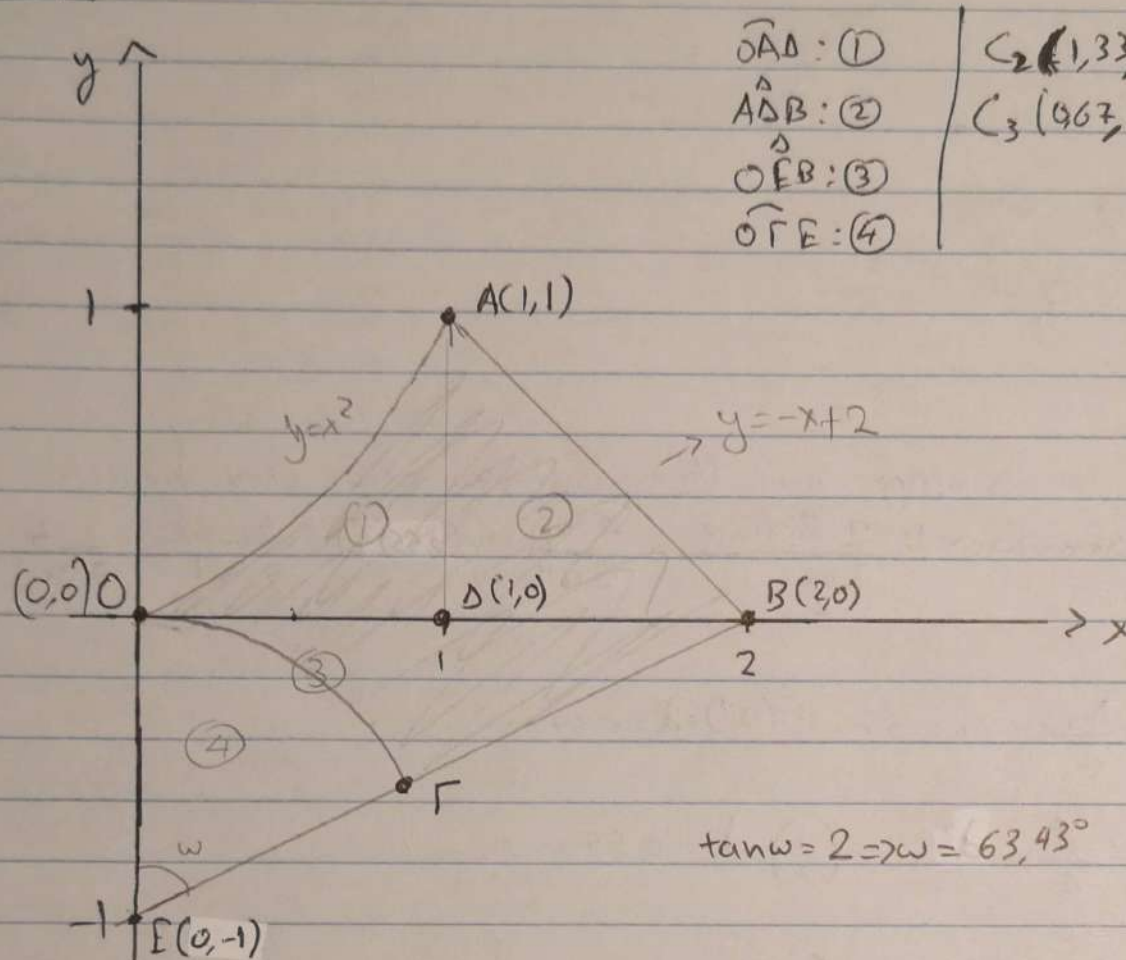 y
OA͡Δ : ①
AΔ̂B : ②
OÊB : ③
OΓ͡E : ④
C₂ (1,33,
C₃ (0,67,
1
A(1,1)
y=x²
→ y=-x+2
①
②
(0,0) O
Δ(1,0)
B(2,0)
x
1
2
③
④
Γ
ω
tanω = 2 => ω = 63,43°
-1
E(0,-1)